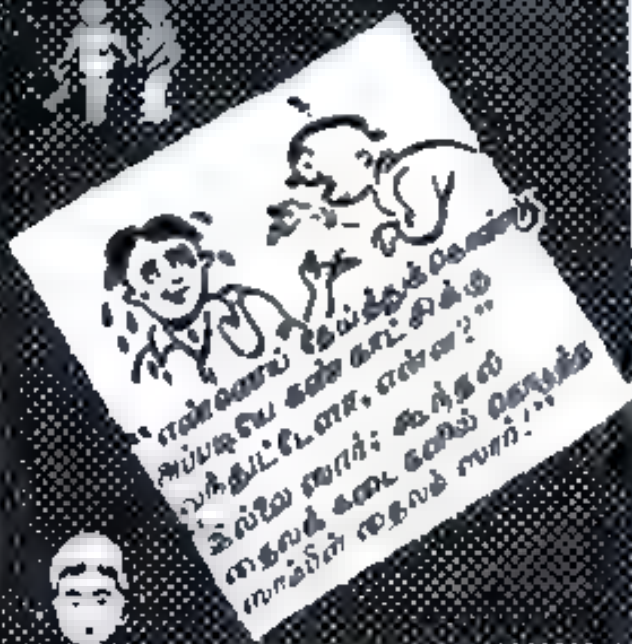 "எண்ணெய் தேய்த்துக்கொண்டு
அப்படியே கண்காட்சிக்கு
வந்துட்டேளா, என்ன?"
இல்லை ஸார்; கூந்தல்
தைலக் கடைகளில் கொடுத்த
ஸாம்பிள் தைலம் ஸார்!"